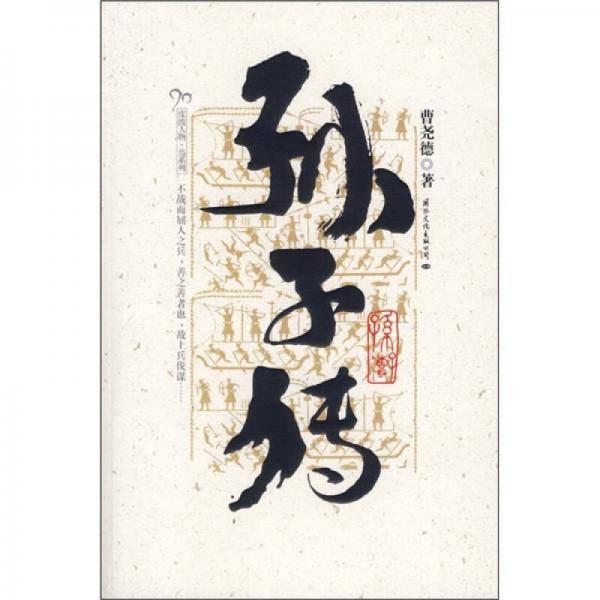 孙子传
曹尧德◎著
国际文化出版公司
不战而屈人之兵，善之善者也，故上兵伐谋……